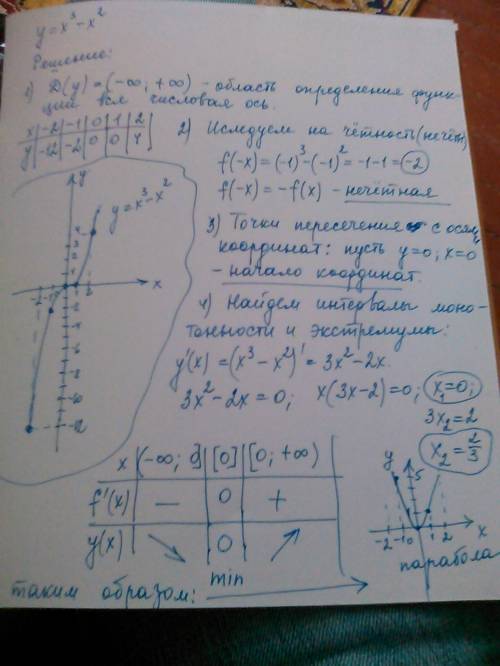 y=x³-x²
Решение:
1) D(y)=(-∞; +∞) - область определения функ-
ции вся числовая ось.
x | -2 | -1 | 0 | 1 | 2
y | -12 | -2 | 0 | 0 | 4
2) Иследуем на чётность(нечёт)
f(-x)=(-1)³-(-1)²=-1-1=-2
f(-x)=-f(x) - нечётная
3) Точки пересечение с осям
координат: пусть y=0; x=0
- начало координат.
4) Найдем интервалы моно-
тонности и экстремумы:
y'(x)=(x³-x²)'=3x²-2x.
3x²-2x=0; x(3x-2)=0; x₁=0;
3x₂=2
x₂=2/3
y
y=x³-x²
x
x | (-∞; 0] | [0] | [0; +∞)
f'(x) | — | 0 | +
y(x) | ↘ | 0 | ↗
min
таким образом:
y
5
-2 -1 0 1 2 x
парабола